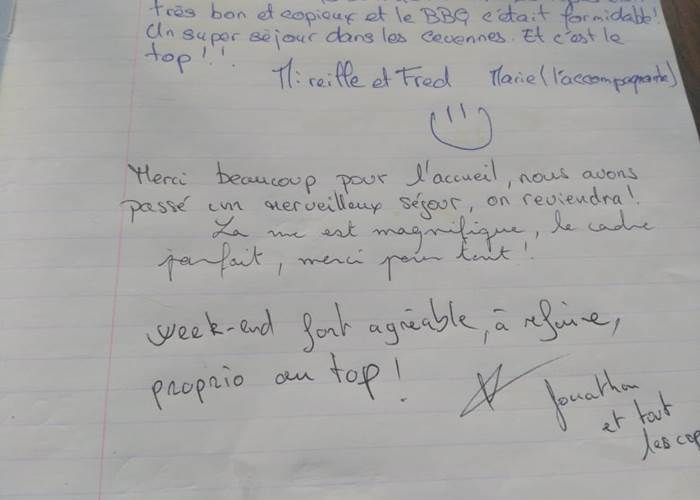 très bon et copieux et le BBQ c'était formidable!
Un super séjour dans les Cevennes. Et c'est le
top!!!
Mireille et Fred Marie (l'accompagnante)
Merci beaucoup pour l'accueil, nous avons
passé un merveilleux séjour, on reviendra!
La vue est magnifique, le cadre
parfait, merci pour tout!
week-end fort agréable, à refaire,
proprio au top!
Jonathan
et tout
les cop